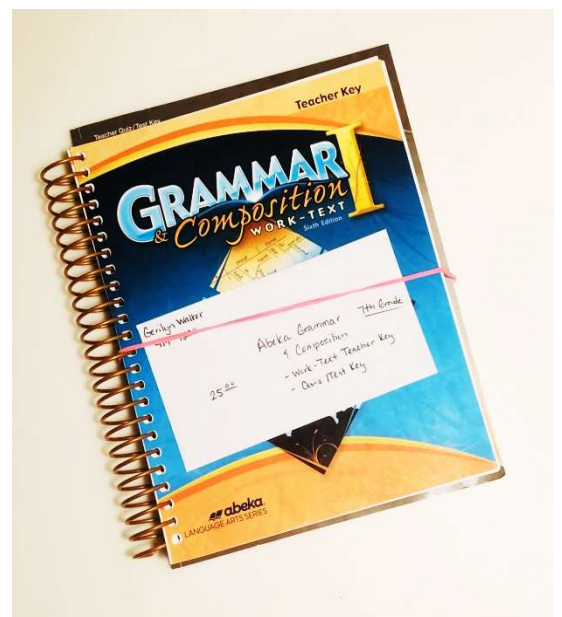 Teacher Quiz/Test Key
Teacher Key
GRAMMAR I
& Composition
WORK-TEXT
Sixth Edition
Gerilyn Walker
7th Grade
Abeka Grammar
& Composition
- Work-Text Teacher Key
- Quiz/Test Key
25.00
abeka
LANGUAGE ARTS SERIES